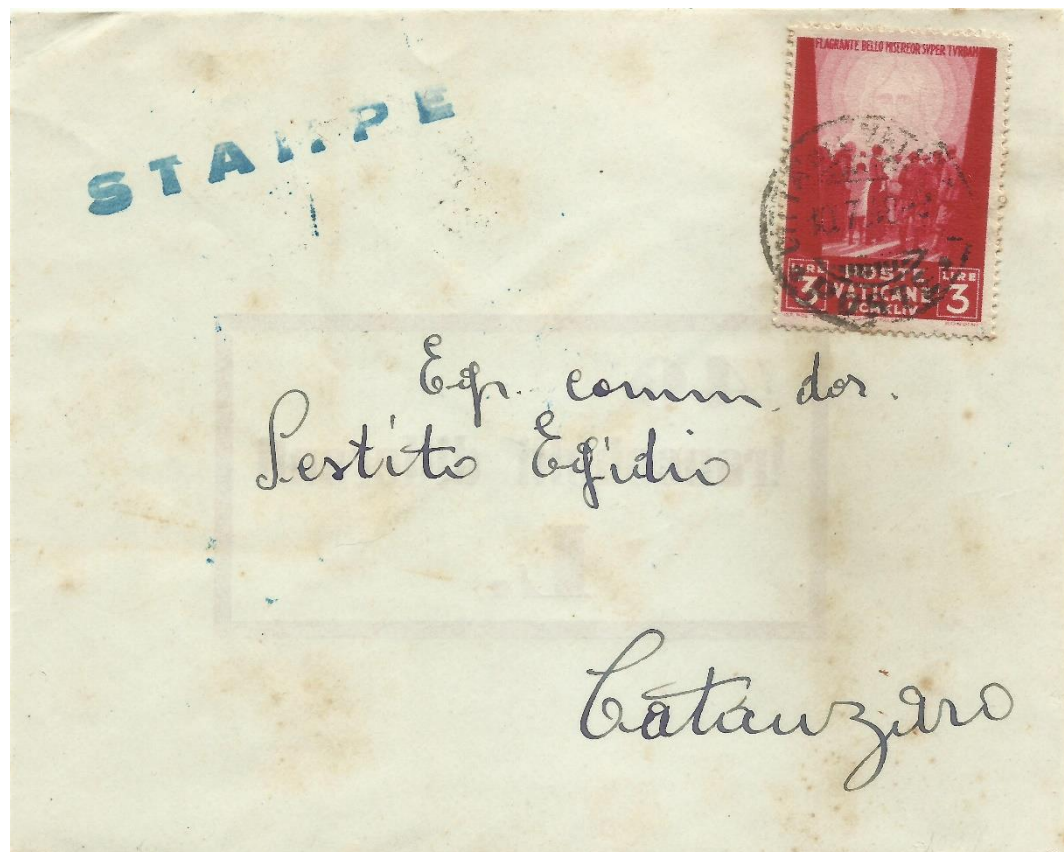 STAMPE
FLAGRANTE BELLO MISEREOR SVPER TVRBAM
LIRE
3
POSTE
VATICANE
MCMXLIV
LIRE
3
Egr. comm. dor.
Sestito Egidio
Catanzaro